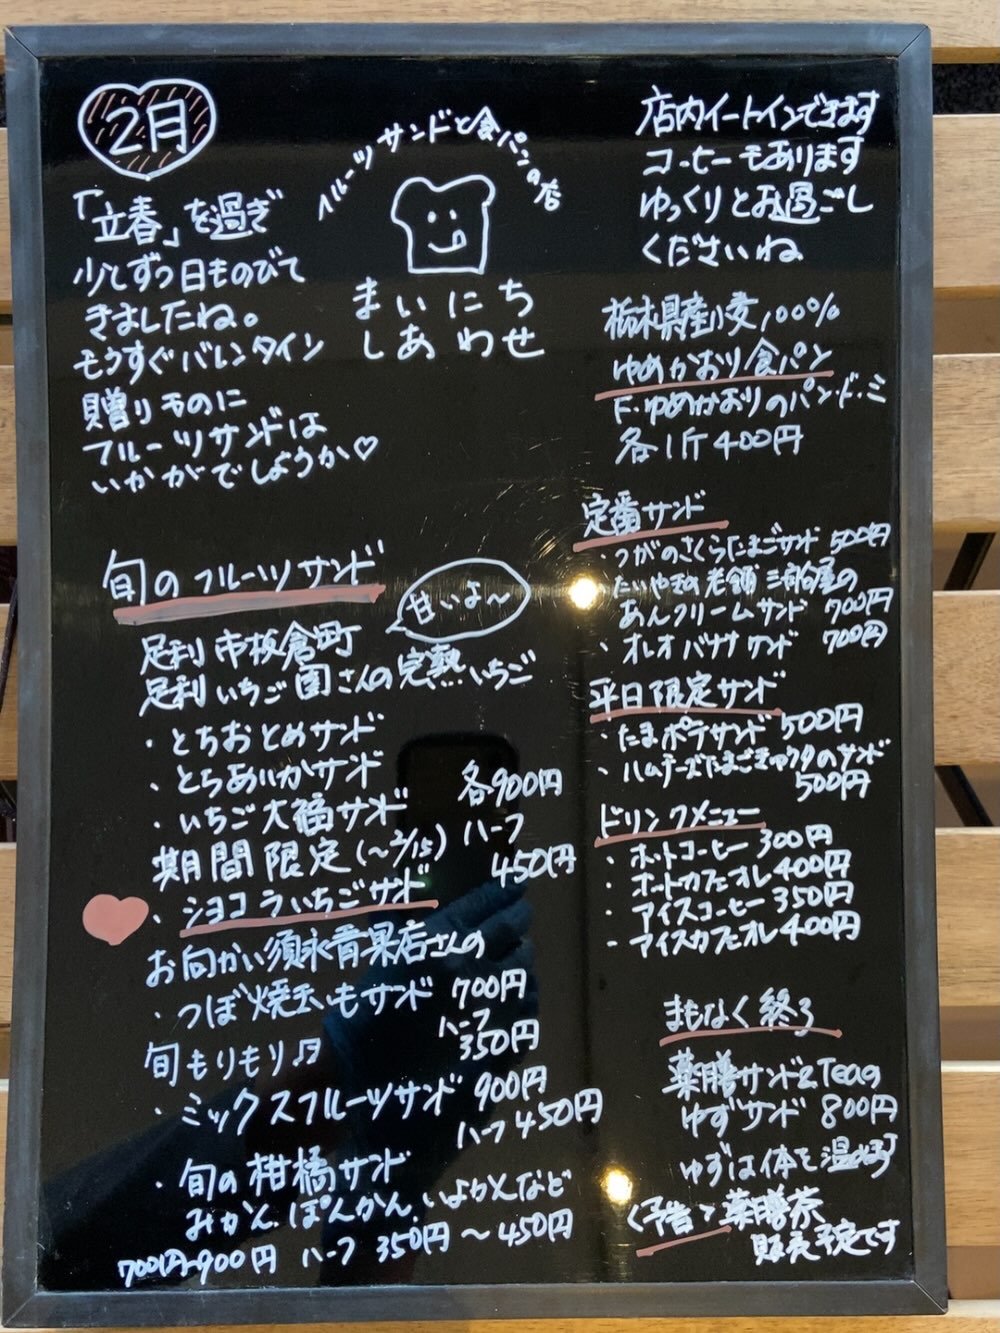 2月
「立春」を過ぎ
少しずつ日ものびて
きましたね。
もうすぐバレンタイン
贈りものに
フルーツサンドは
いかがでしょうか♡
フルーツサンドと食パンの店
まいにち
しあわせ
店内イートインできます
コーヒーもあります
ゆっくりとお過ごし
くださいね
栃木県産小麦100%
ゆめかおり食パン
ゆめかおりのパン・ド・ミ
各1斤400円
旬のフルーツサンド
甘いよ〜
足利市板倉町
足利いちご園さんの完熟いちご
・とちおとめサンド
・とちあいかサンド
・いちご大福サンド
各900円
ハーフ
450円
期間限定(〜2/15)
・ショコラいちごサンド
お向かい須永青果店さんの
・つぼ焼きいもサンド 700円
ハーフ
350円
旬もりもり♬
・ミックスフルーツサンド 900円
ハーフ 450円
・旬の柑橘サンド
みかん、ぽんかん、いよかんなど
700円〜900円 ハーフ 350円〜450円
定番サンド
・つがのさくらたまごサンド 500円
・たいやきの老舗 三宿白屋の
あんクリームサンド 700円
・オレオバナナサンド 700円
平日限定サンド
・たまポテサンド 500円
・ハムチーズたまごきゅうりのサンド
500円
ドリンクメニュー
・ホットコーヒー 300円
・ホットカフェオレ 400円
・アイスコーヒー 350円
・アイスカフェオレ 400円
まもなく終了
薬膳サンド&Teaの
ゆずサンド 800円
ゆずは体を温める
＜予告＞薬膳茶
販売予定です